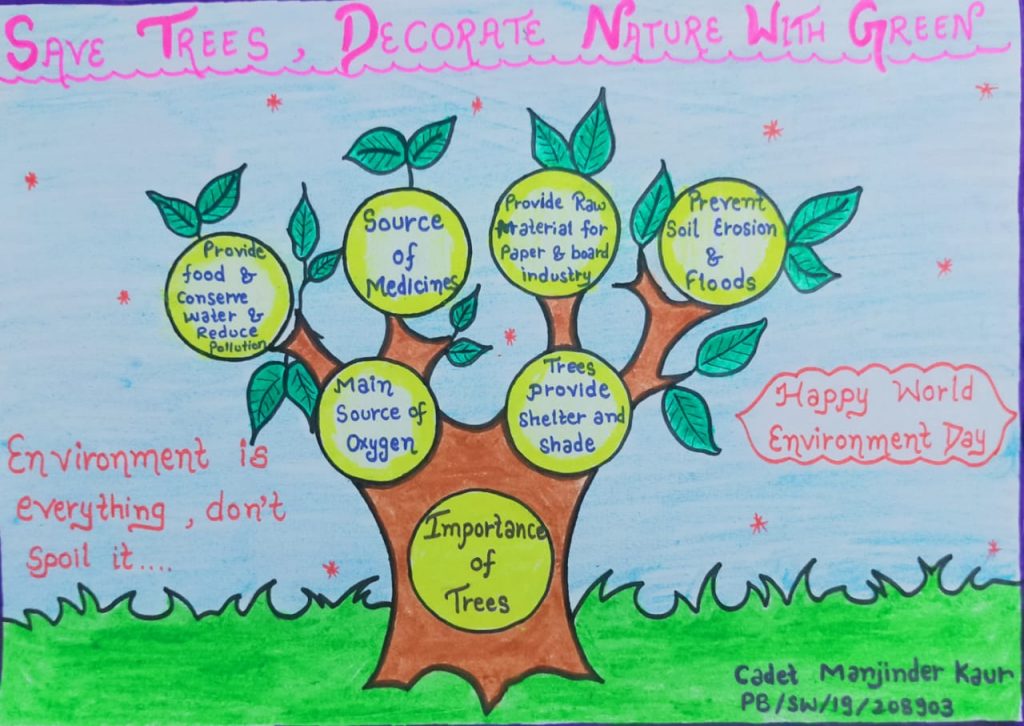 Save Trees, Decorate Nature With Green
Provide
food &
Conserve
Water &
Reduce
Pollution
Source
of
Medicines
Provide Raw
Material for
Paper & board
industry
Prevent
Soil Erosion
&
Floods
Main
Source of
Oxygen
Trees
provide
Shelter and
Shade
Importance
of
Trees
Happy World
Environment Day
Environment is
everything, don't
spoil it....
Cadet Manjinder Kaur
PB/SW/19/208903